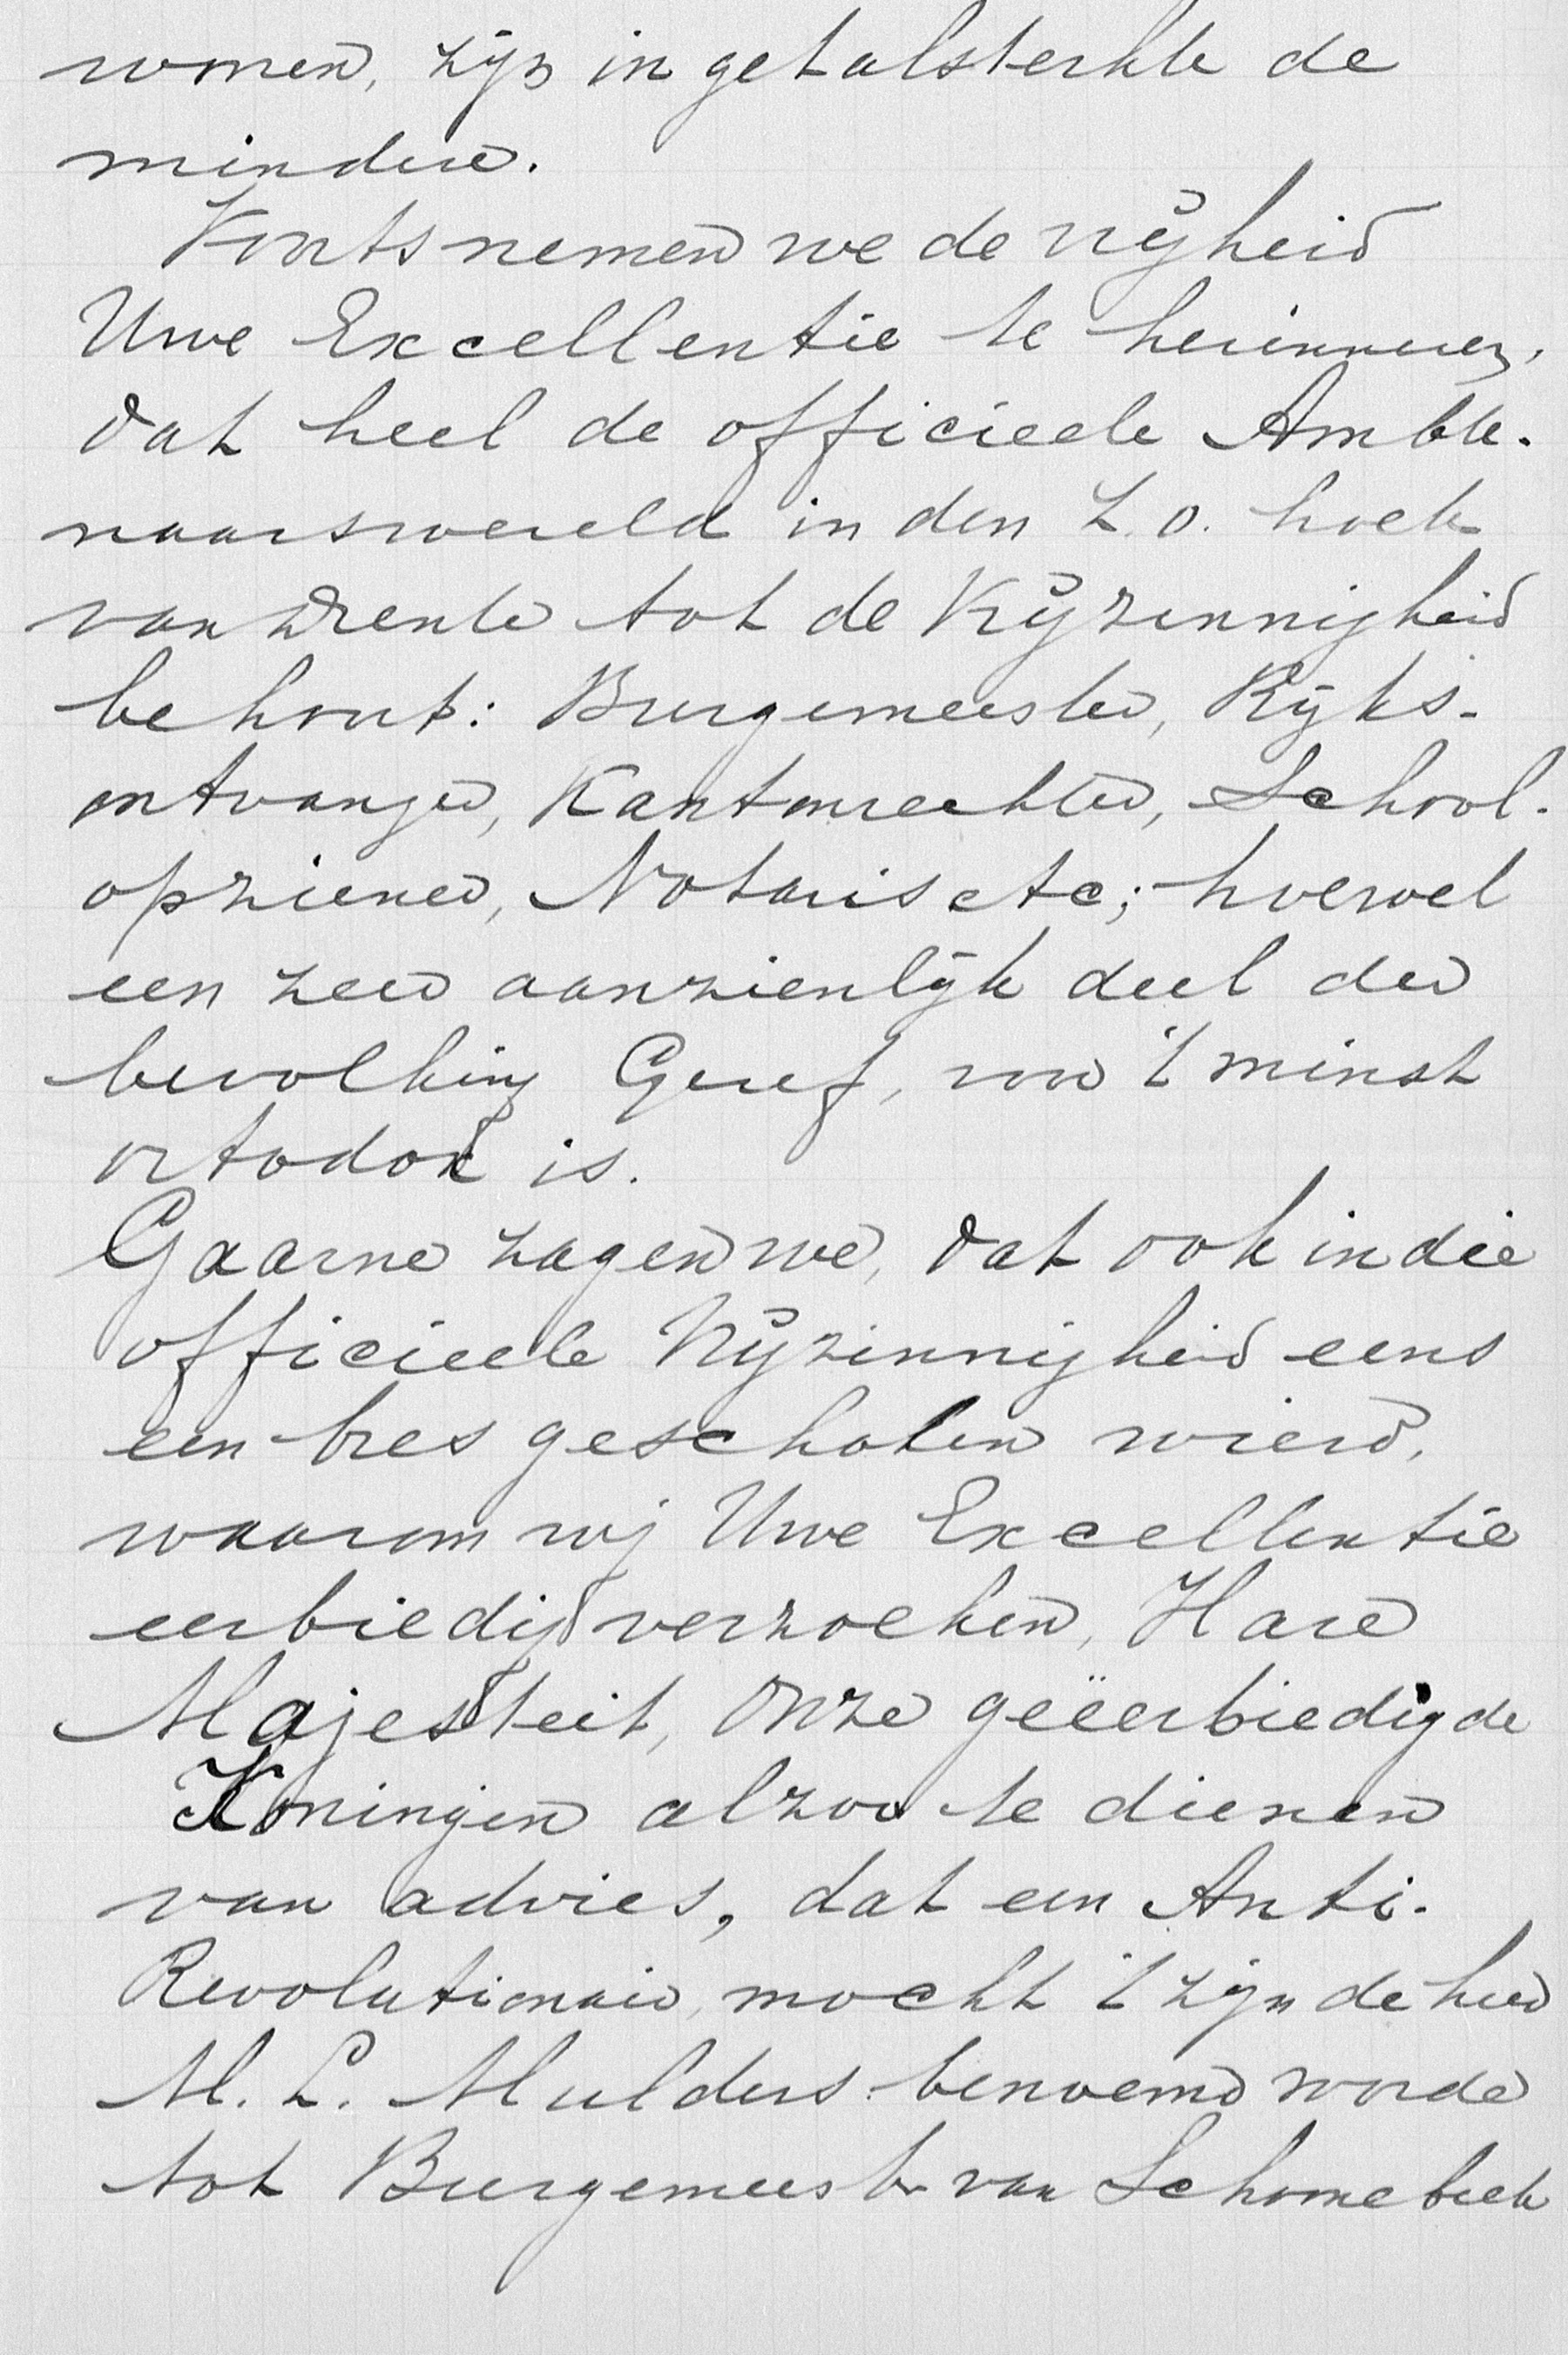 women, zijn in getalsterkte de
mindere.
Voorts nemen we de vrijheid
Uwe Excellentie te herinneren,
dat heel de officieele Ambte-
naarswereld in den Z.O. hoek
van Drente tot de Vrijzinnigheid
behoort: Burgemeester, Rijks-
ontvanger, Kantonrechter, School-
opziener, Notaris etc; hoewel
een zeer aanzienlijk deel der
bevolking Geref, voor 't minst
ortodox is.
Gaarne zagen we, dat ook in die
officieele Vrijzinnigheid eens
een bres geschoten wierd,
waarom wij Uwe Excellentie
eerbiedig verzoeken, Hare
Majesteit, Onze geëerbiedigde
Koningin alzoo te dienen
van advies, dat een Anti-
Revolutionair, mocht 't zijn de heer
M. L. Mulders benoemd worde
tot Burgemeester van Schoonebeek